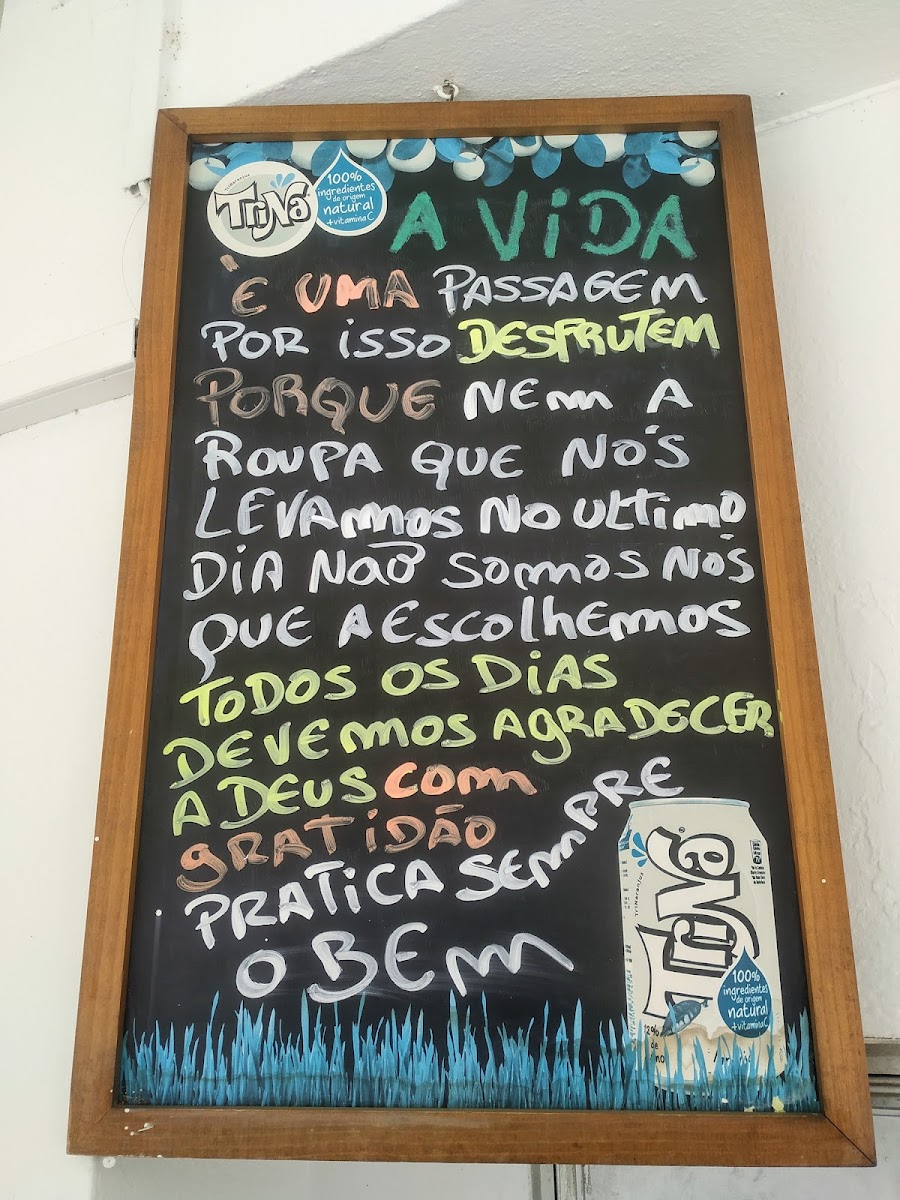 TriNaranjus
TriNa
100%
ingredientes
de origem
natural
+vitamina C
A ViDA
È UMA PASSAGEM
POR isso DESFRUTEM
PORQUE NEM A
ROUPA QUE NÓS
LEVAMOS NO ULTIMO
DIA NÃO SOMOS NÓS
QUE A ESCOLHEMOS
TODOS OS DIAS
DEVEMOS AGRADECER
A DEUS COM
GRATIDÃO
PRATICA SEMPRE
O BEM
TriNaranjus
TriNa
100%
ingredientes
de origem
natural
+vitamina C